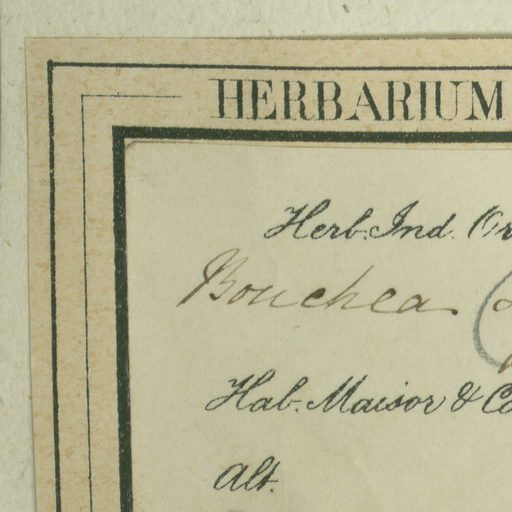 HERBARIUM
Herb. Ind. Or
Bouchea
Hab. Maisor & Ca
Alt.